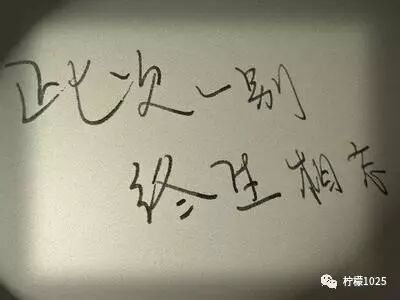 此次一别
终生相忘
柠檬1025